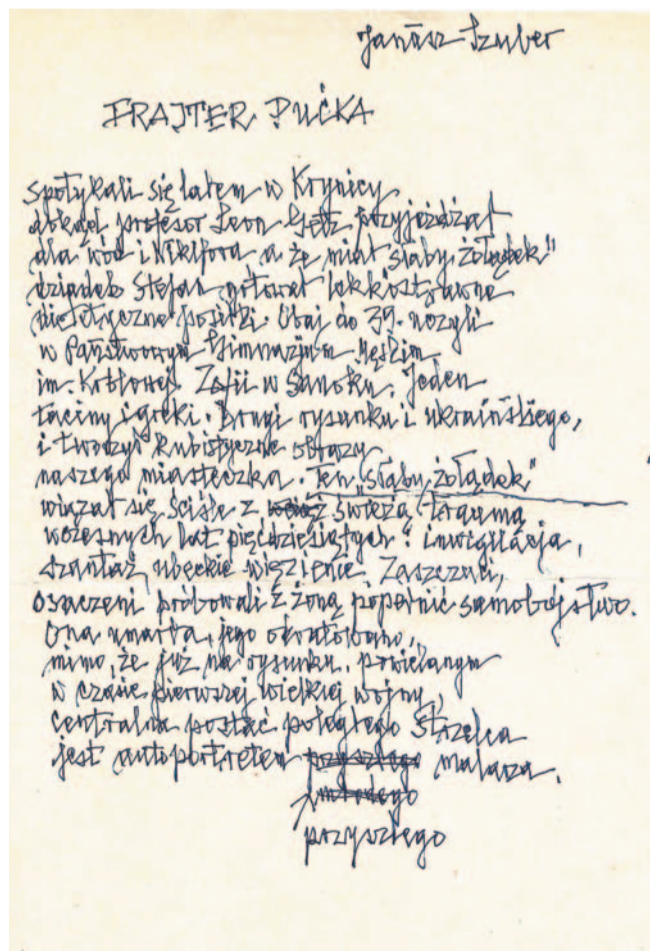 Janusz Szuber
FRAJTER PUĆKA
spotykali się latem w Krynicy
dokąd profesor Leon Getz przyjeżdżał
dla wód i Nikifora a że miał "słaby żołądek"
dziadek Stefan gotował lekkostrawne
dietetyczne posiłki. Obaj do 39. uczyli
w Państwowym Gimnazjum Męskim
im. Królowej Zofii w Sanoku. Jeden
łaciny i greki. Drugi rysunku i ukraińskiego,
i tworzył kubistyczne obrazy
naszego miasteczka. Ten "słaby żołądek"
wiązał się ściśle z świeżą traumą
wczesnych lat pięćdziesiątych: inwigilacja,
szantaż, ubeckie więzienie. Zaszczuci,
osaczeni próbowali z żoną popełnić samobójstwo.
Ona umarła, jego odratowano,
mimo, że już na rysunku, powielanym
w czasie pierwszej wielkiej wojny,
centralna postać poległego Strzelca
jest autoportretem przyszłego malarza.
młodego
przyszłego